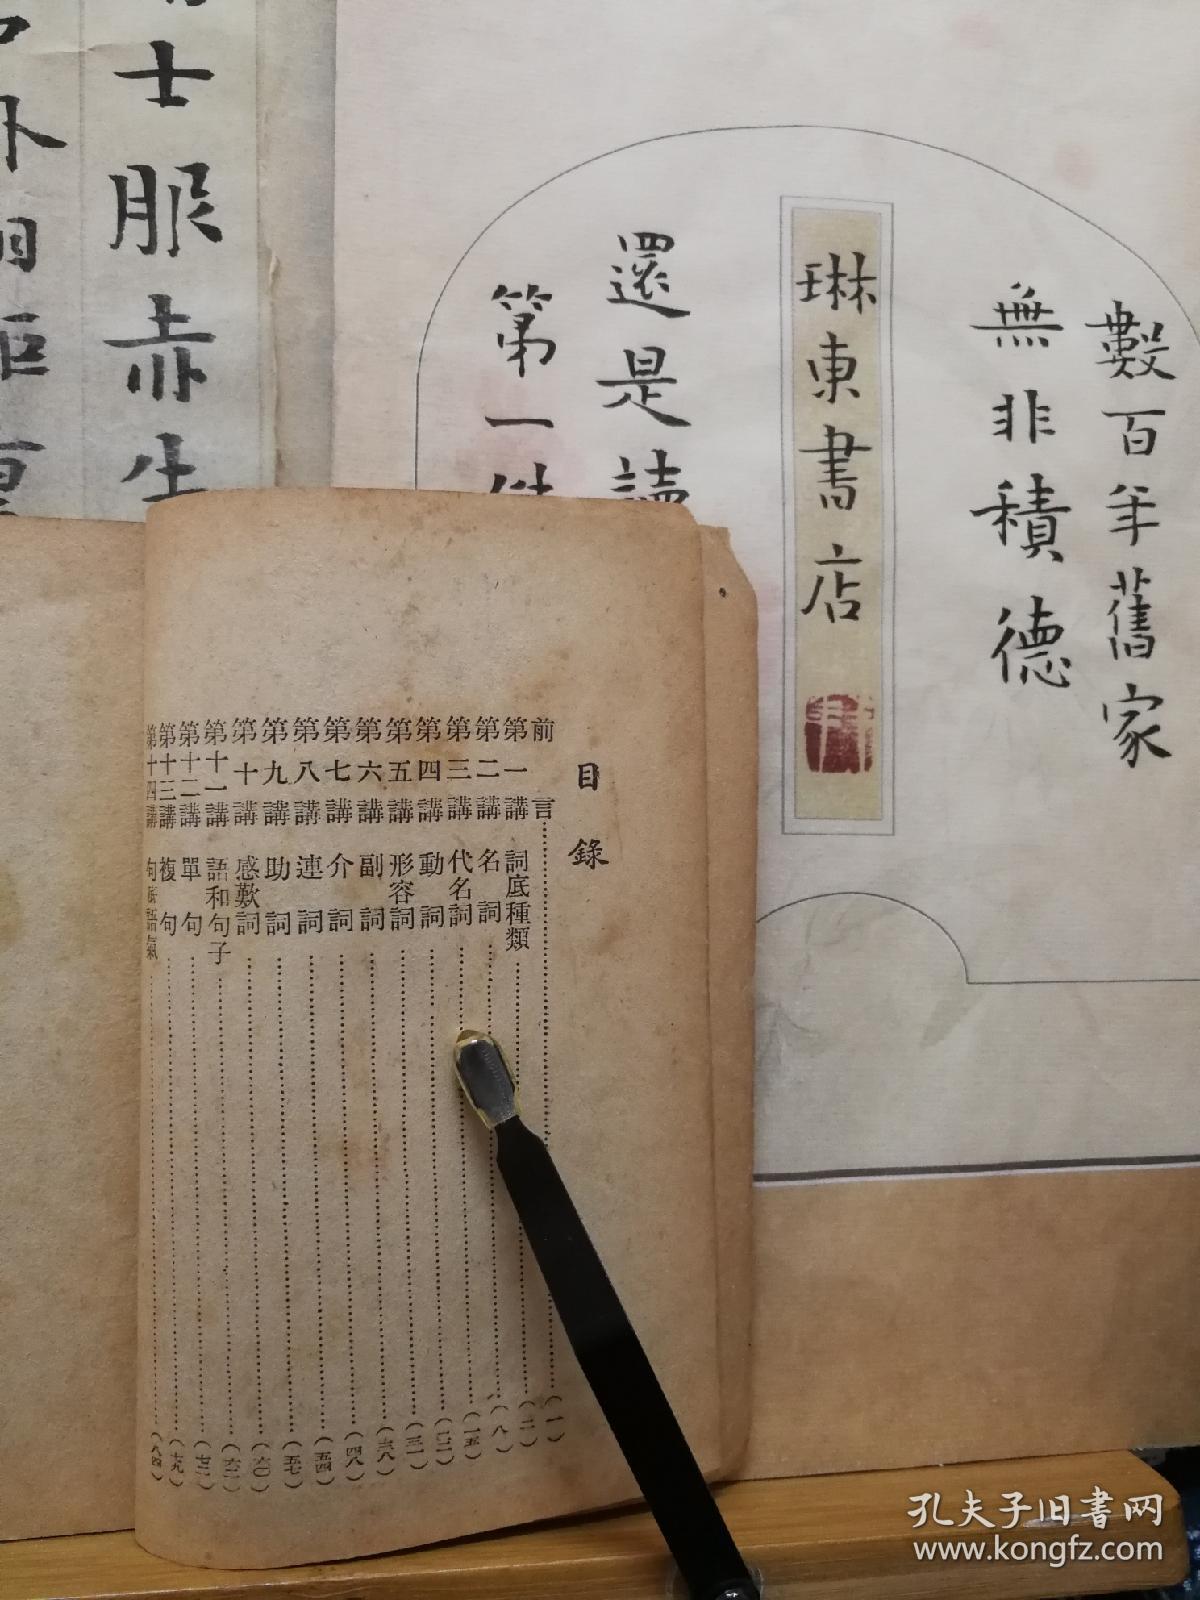 數百年舊家
無非積德
琳東書店
還是讀
第一件
士服赤生
目錄
前言(一)
第一講 詞底種類(二)
第二講 名詞(八)
第三講 代名詞(一五)
第四講 動詞(二二)
第五講 形容詞(三一)
第六講 副詞(三八)
第七講 介詞(四八)
第八講 連詞(五四)
第九講 助詞(五七)
第十講 感歎詞(六〇)
第十一講 語和句子(六二)
第十二講 單句
第十三講 複句
第十四講 句底語氣(八四)
孔夫子旧书网
www.kongfz.com